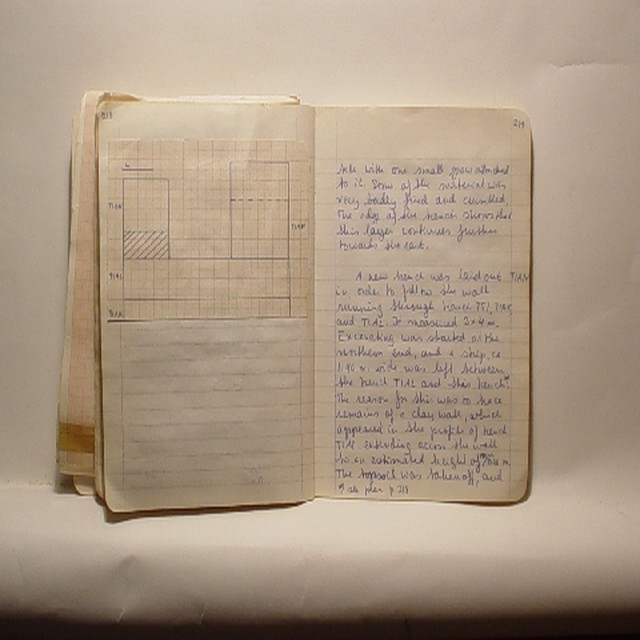 219
side with one small piece attached
to it. Some of the material was
very badly fired and crumbled.
The edge of the trench shows that
this layer continues further
towards the east.
A new trench was laid out
in order to follow the wall
running through trench
and T1AL. It measured 2x4 m.
Excavating was started at the
northern end, and a strip, ca
1.40 m. wide was left between
the trench T1AL and this trench.
The reason for this was to trace
remains of a clay wall, which
appeared in the profile of trench
T1AL extending across the wall
to an estimated height of m.
The topsoil was taken off, and